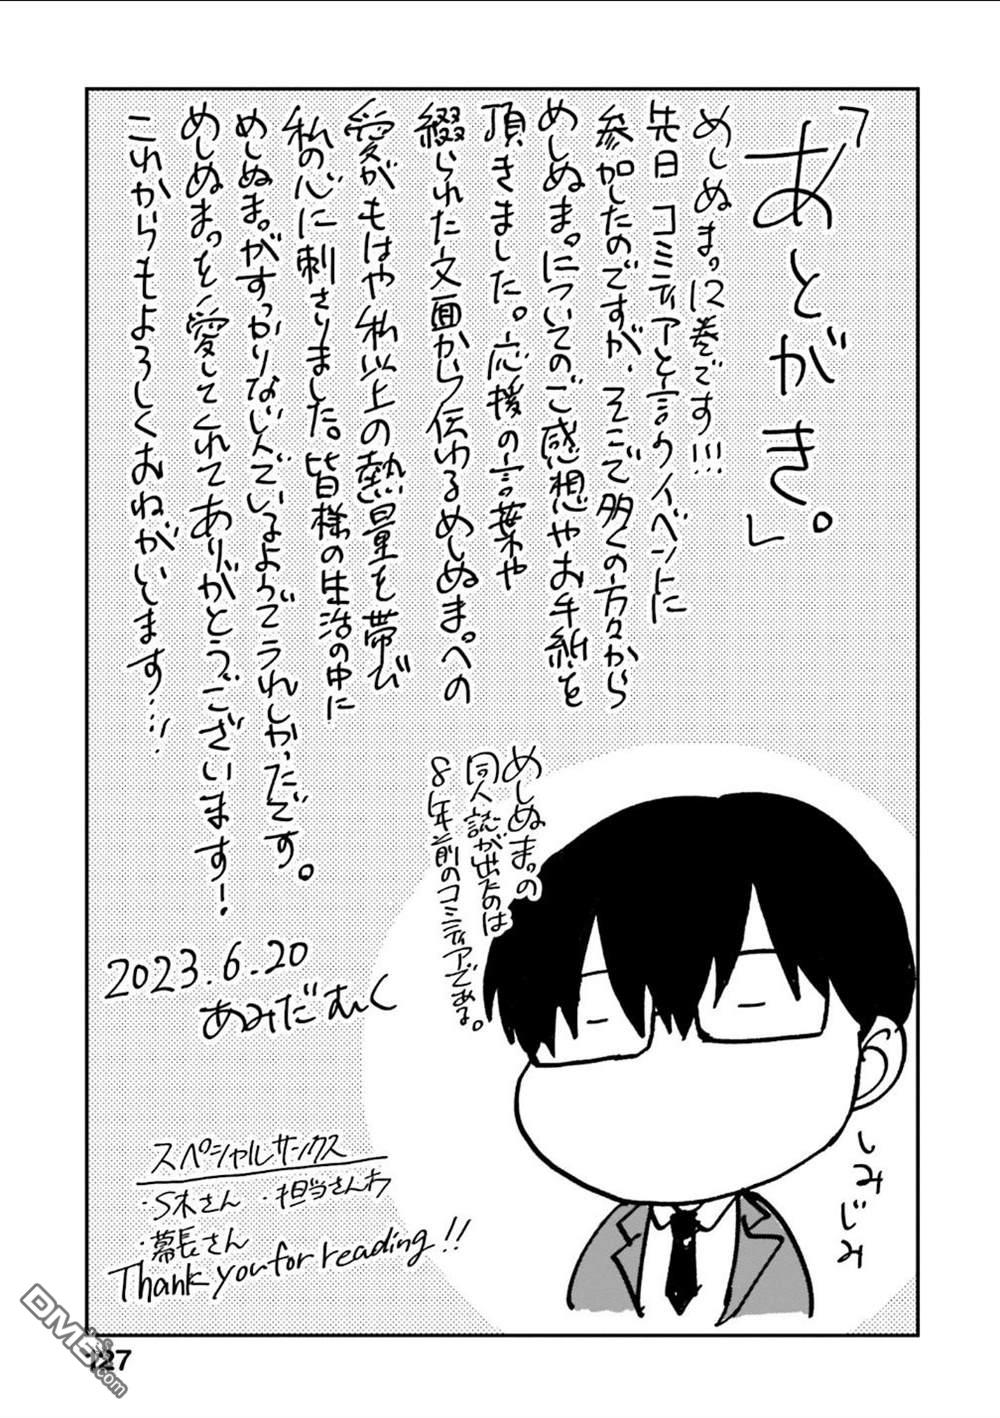 「あとがき。」
めしぬま。12巻です!!!
先日コミティアと言うイベントに
参加したのですが、そこで多くの方々から
めしぬま。についてのご感想やお手紙を
頂きました。応援の言葉や
綴られた文面から伝わるめしぬま。への
愛がもはや私以上の熱量を帯び
私の心に刺さりました。皆様の生活の中に
めしぬま。がすっかりなじんでいるようでうれしかったです。
めしぬま。を愛してくれてありがとうございます!
これからもよろしくおねがいします!!!
めしぬま。の
同人誌が出たのは
8年前のコミティアである。
2023.6.20
あみだむく
しみじみ
スペシャルサンクス
・S木さん ・担当さんわ
・幕長さん
Thank you for reading!!
127